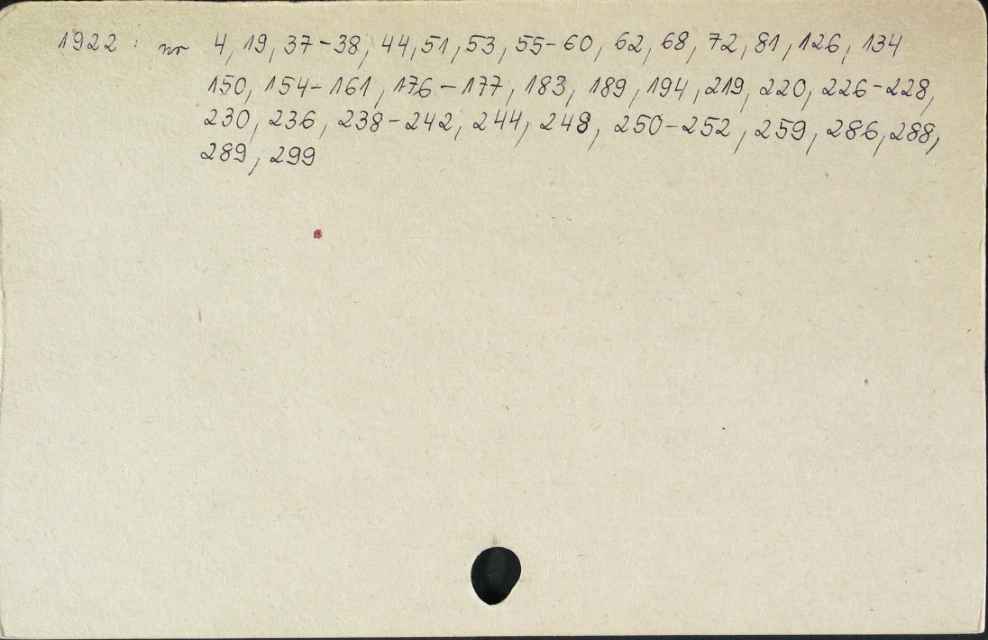 1922 : nr 4, 19, 37-38, 44, 51, 53, 55-60, 62, 68, 72, 81, 126, 134
150, 154-161, 176-177, 183, 189, 194, 219, 220, 226-228,
230, 236, 238-242, 244, 248, 250-252, 259, 286, 288,
289, 299